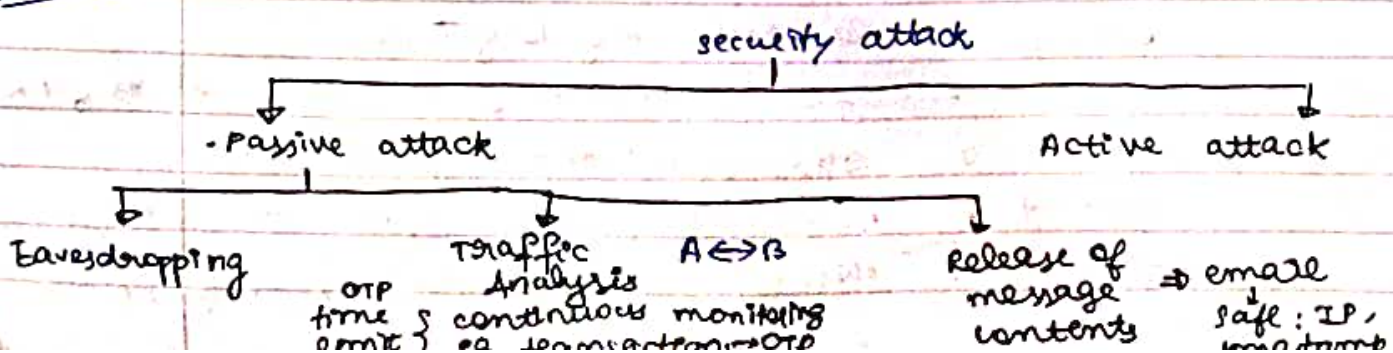 security attack
Passive attack
Active attack
Eavesdropping
Traffic Analysis
A ↔ B
OTP time limit
continuous monitoring
eg transaction → OTP
Release of message contents
⇒ email
↓
safe : IP,